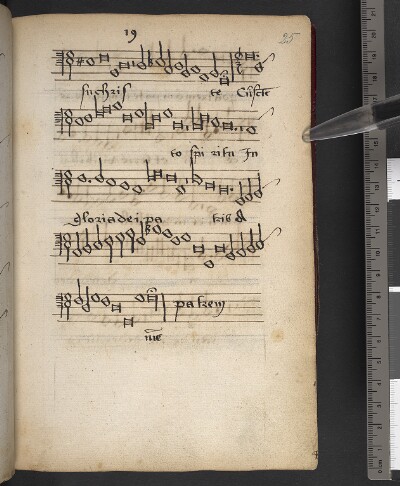 19
25
su chris te Cu sctc
to spi ritu In
gloria dei pa tris A
patrem
me